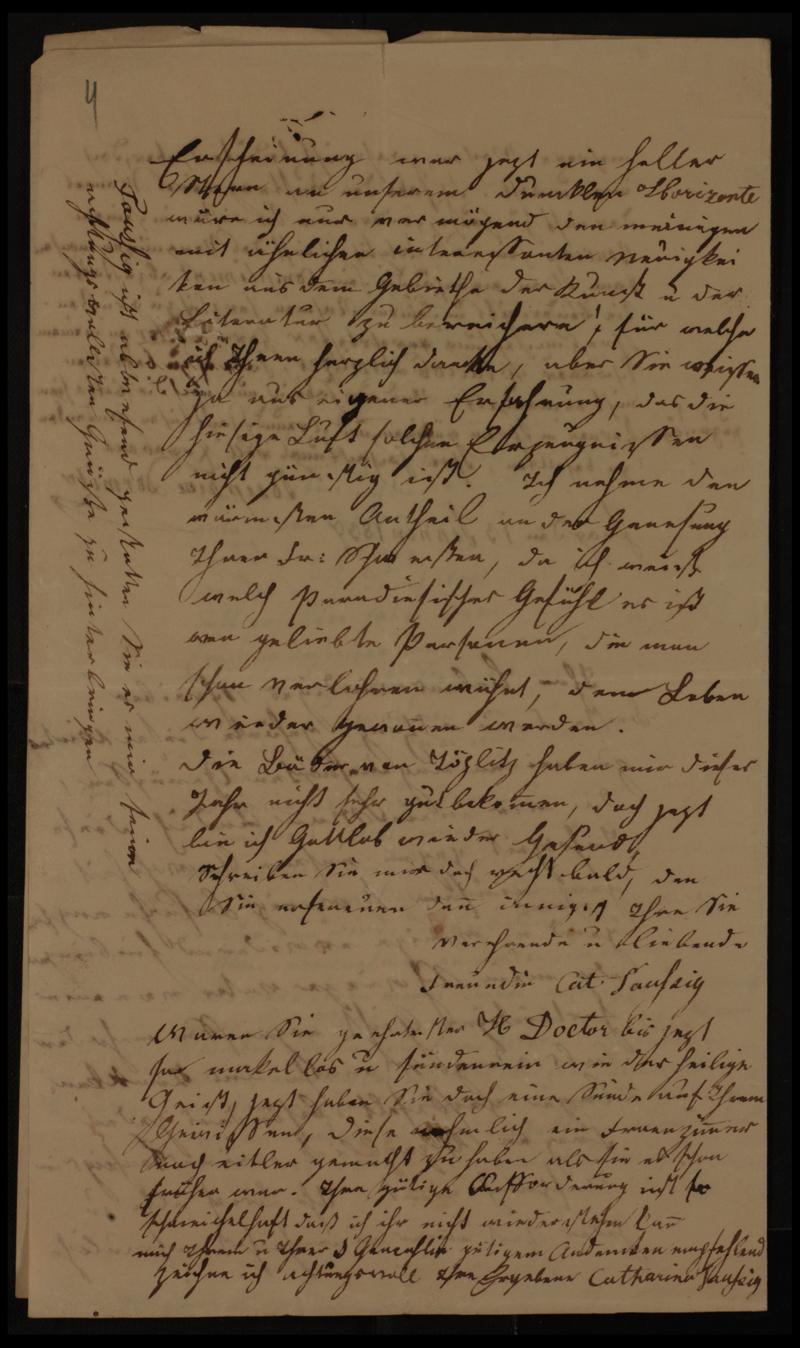 4
Erscheinung war jezt ein heller
Stern an unserem dunklen Horizonte
wäre ich nur vermögend den meinigen
mit ähnlichen interessanten Neuigkei
ten aus dem Gebiethe der Kunst u der
Literatur zu bereichern, für welche
ich Ihnen herzlich danke, aber Sie wissen
ja aus eigener Erfahrung, das die
hiesige Luft solchen Erzeugnissen
nicht günstig ist. Ich nehme den
wärmsten Antheil an der Genesung
Ihrer Fr: Schwester, da ich weiß
welch Paradisisches Gefühl es ist
wen geliebte Personen, die man
schon verlohren wähnt, dem Leben
wieder gewonen werden.
Die Bäder von Töplitz haben mir dieses
Jahr nicht sehr gut bekomen, doch jezt
bin ich Gottlob wieder Gesund,
Schreiben Sie mir doch recht bald, den
Sie erfreuen den innigst Ihre Sie
verehrende u liebende
Freundin Cat. Taussig
Waren Sie geehrtester H Doctor bis jezt
so makellos u sündenrein wie der heilige
Geist, jezt haben Sie doch eine Sünde auf Ihrem
Gewissen, diese nehmlich ein Frauenzimer
noch eitler gemacht zu haben als sie es schon
früher war. Ihre gütige Aufforderung ist so
schmeichelhaft daß ich ihr nicht wiederstehen kan
mich Ihrem u Ihrer Gemahlin gütigem Andenken empfehlend
zeichne ich achtungsvoll Ihre Ergebene Catharina Taussig
Taussig ist abwesend gestatten Sie es mir seine
achtungsvollsten Grüße zu hinterbringen